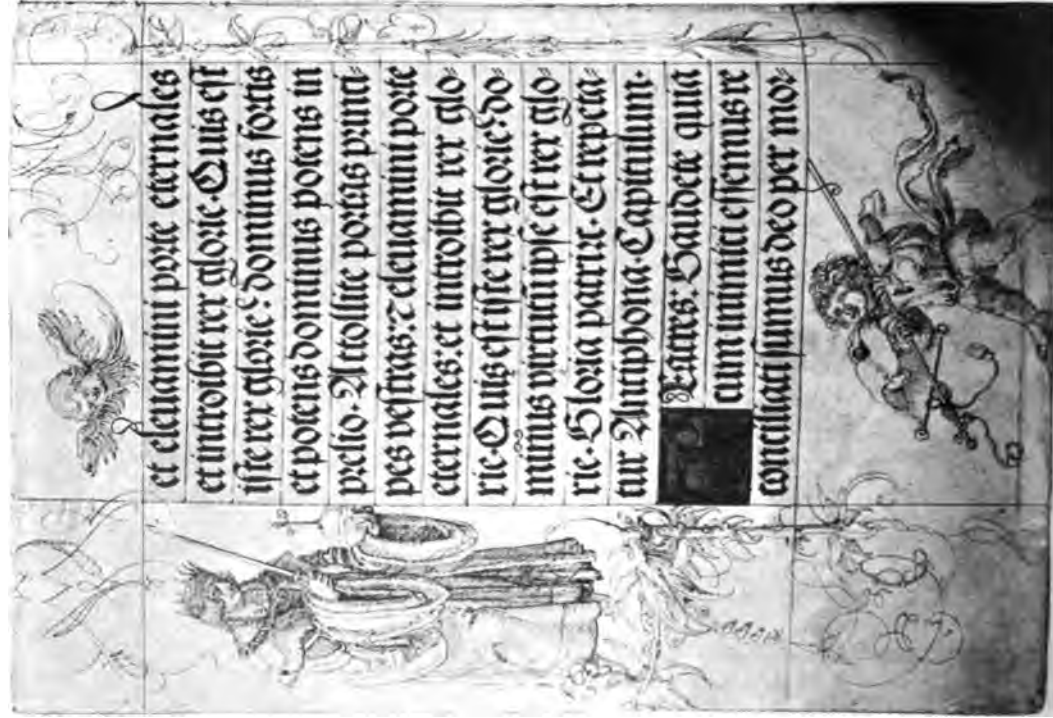 et eleuamini porte eternales
et introibit rex glorie. Quis est
iste rex glorie? dominus fortis
et potens dominus potens in
prelio. Attollite portas princi⸗
pes vestras: et eleuamini porte
eternales: et introibit rex glo⸗
rie. Quis est iste rex glorie? do⸗
minus virtutū ipse est rex glo⸗
rie. Gloria patri ɾc. Et repeta⸗
tur Antiphona. Capitulum.
Fratres. Gaudete quia
cum inimici essemus re
conciliati sumus deo per mor⸗